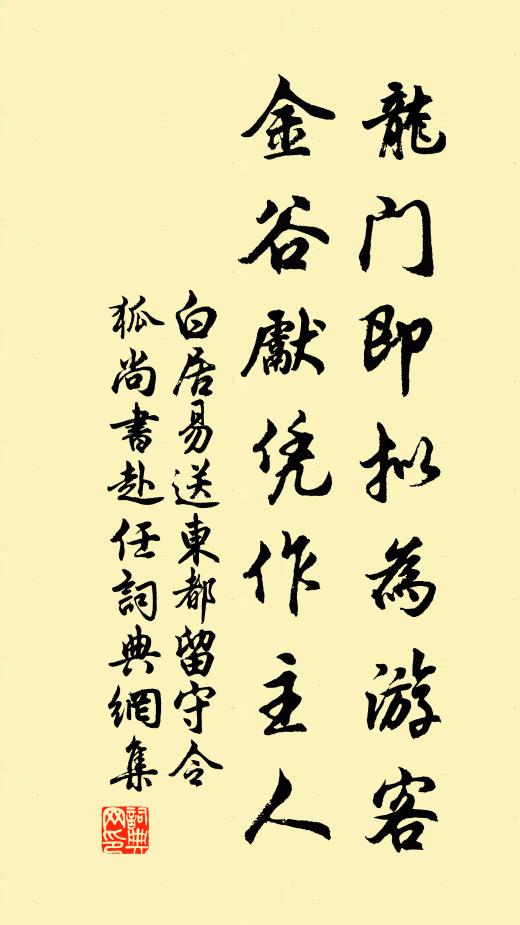 龍门即拟為游客
金谷獻凭作主人
白居易送東都留守令
狐尚書赴任詞典網集
詞典网印